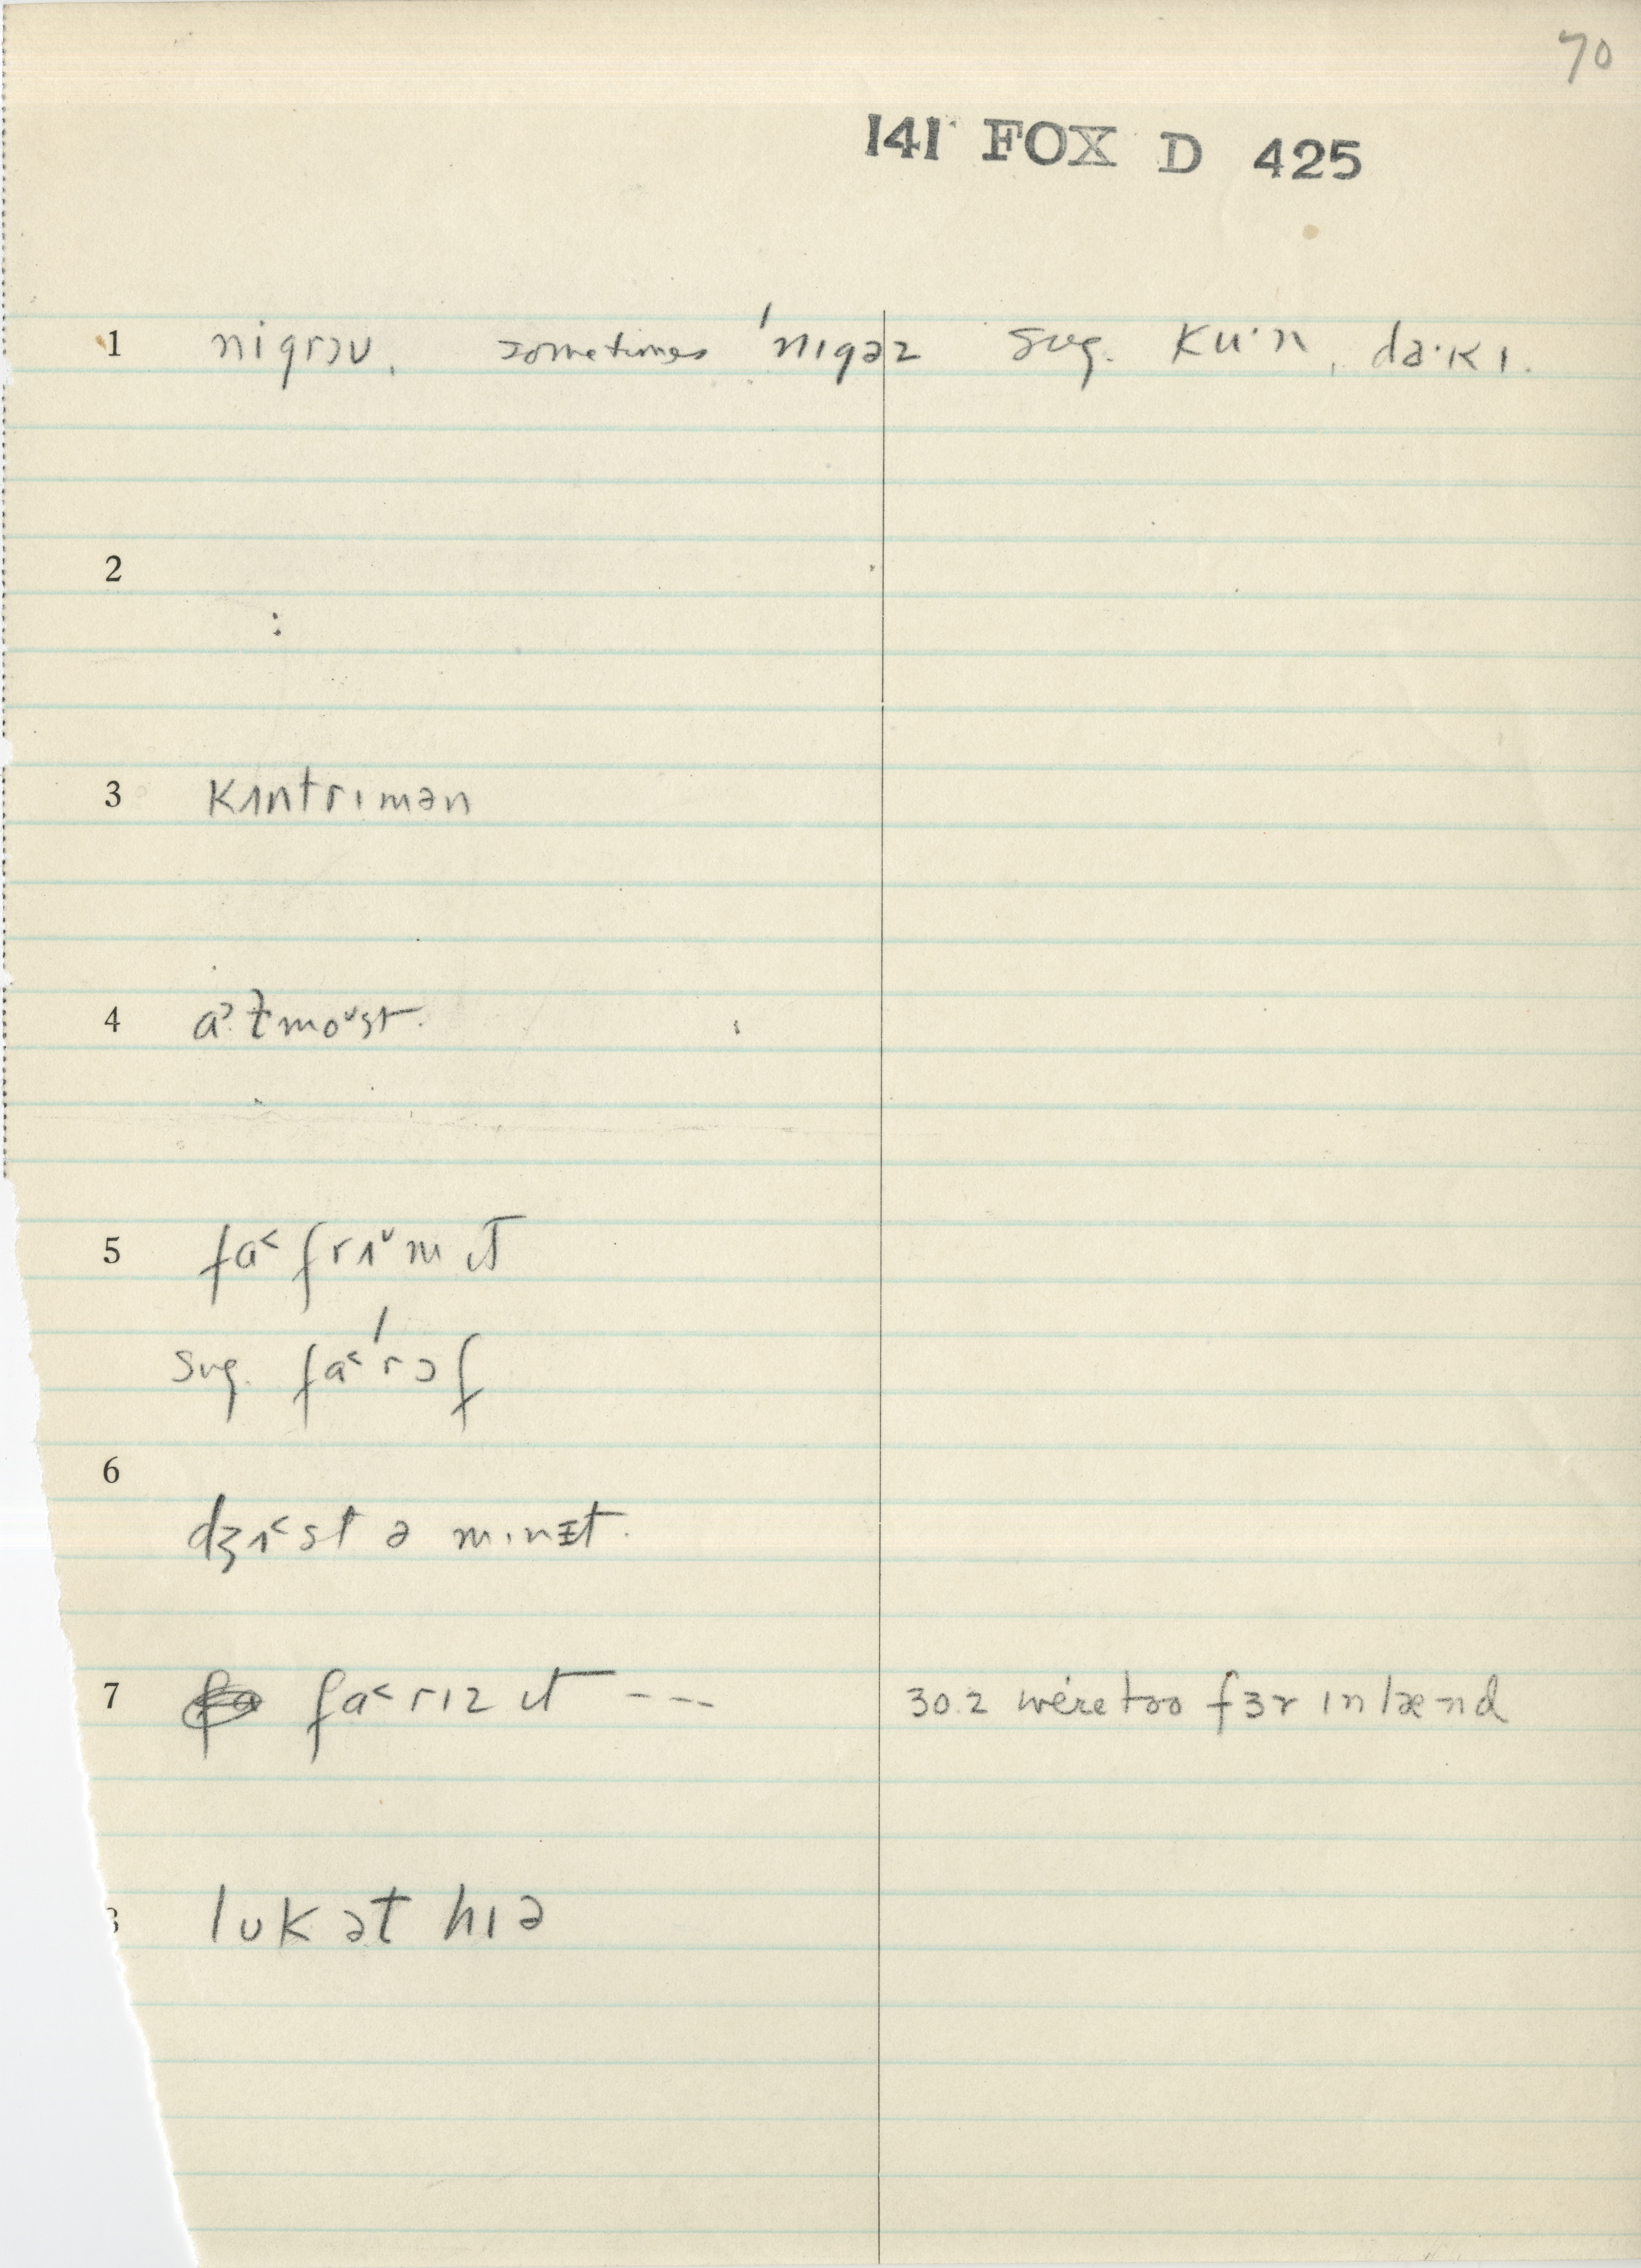 70
141 FOX D 425
1 nigrəʊ, sometimes ˈnɪgəz sug. ku·n, da·kɪ.
2
3 kʌntrɪmən
4 ɫmoˇst.
5 fa˂ frʌˇm ɪt
sug. fa˂ˈrɔf
6
dʒʌ˂st ə mɪnɪt.
7 fa˂rɪz ɪt ---  30.2 we're too fɜr ɪnlænd
lʊk ət hɪə